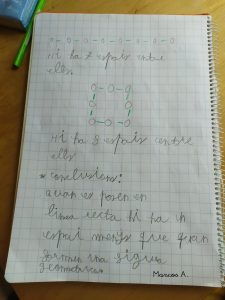 Hi ha 7 espais entre
ells.
Hi ha 8 espais entre
ells
* conclusions:
quan es posen en
línea recta hi ha un
espai menys que quan
formen una figura
geometrica
Marcos A.